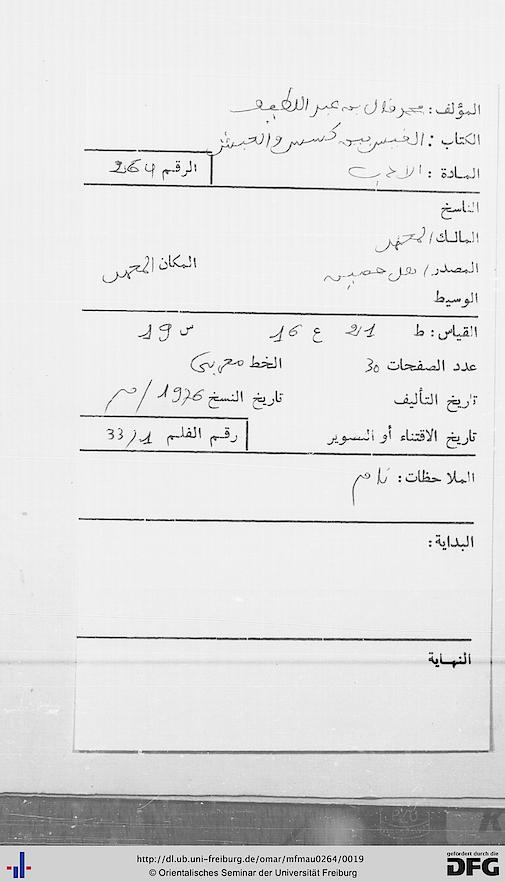 المؤلف: محمد فال بن عبد اللطيف
الكتاب: القبس بين كسس والحبش
المادة: الأدب الرقم 264
الناسخ
المالك/ المعهد
المصدر/ المكان المعهد
الوسيط
القياس: ط 21 ع 16 س 19
عدد الصفحات 30 الخط مغربي
تاريخ التأليف تاريخ النسخ 1976/م
تاريخ الاقتناء أو التصوير رقم الفلم 33/1
الملاحظات: تام
البداية:
النهاية
http://dl.ub.uni-freiburg.de/omar/mfmau0264/0019
© Orientalisches Seminar der Universität Freiburg
gefördert durch die
DFG